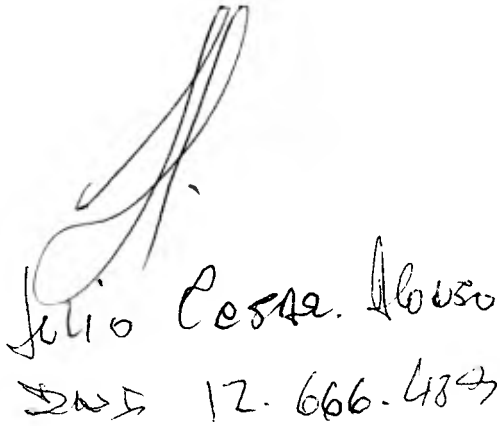 Julio Cesar. Alonso
DNI 12.666.489